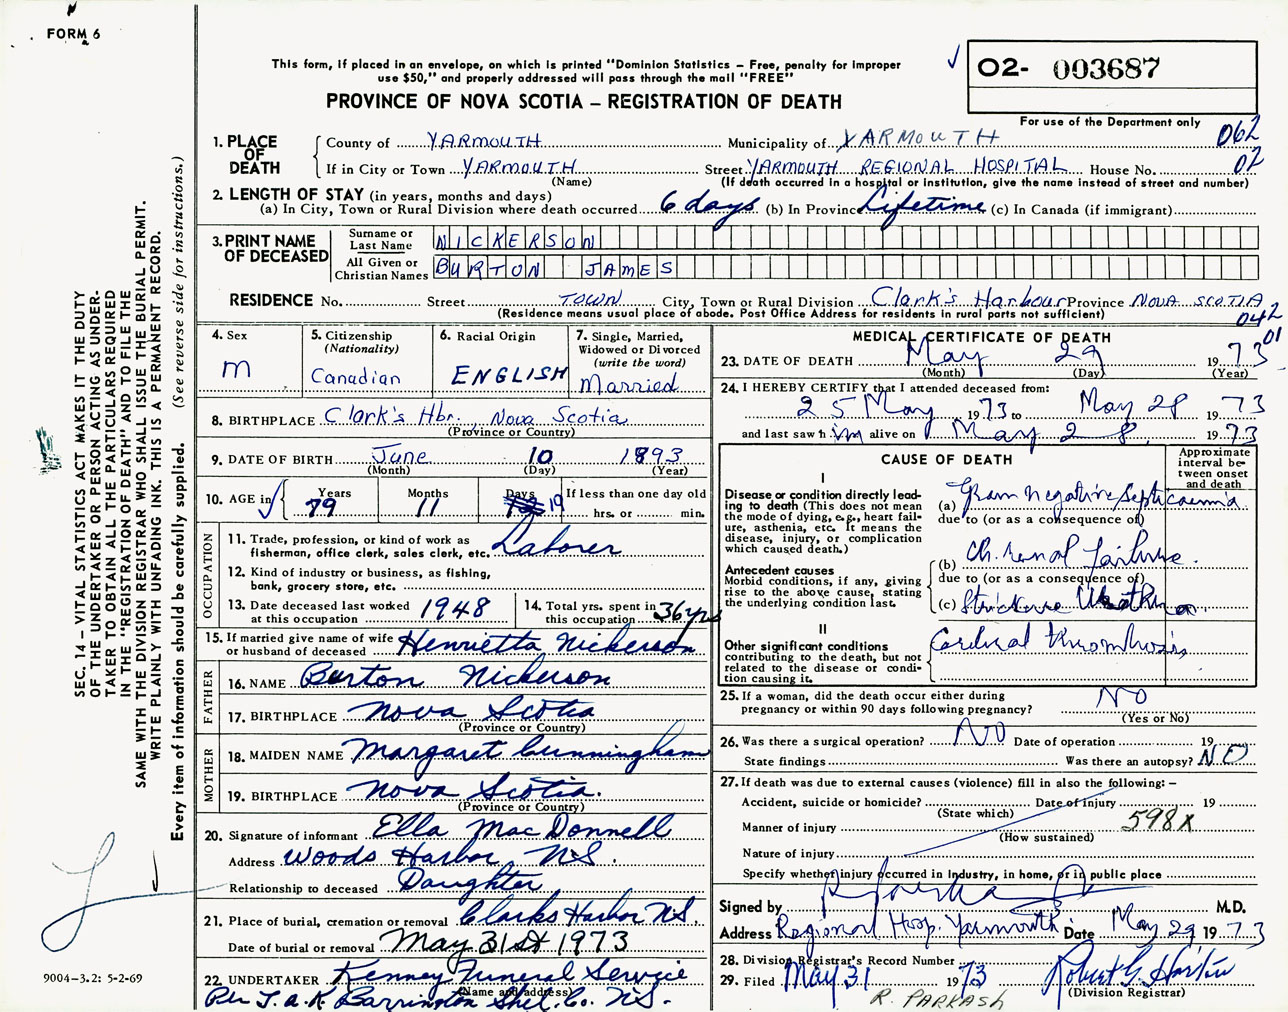 FORM 6
This form, if placed in an envelope, on which is printed "Dominion Statistics – Free, penalty for improper
use $50," and properly addressed will pass through the mail "FREE"
PROVINCE OF NOVA SCOTIA – REGISTRATION OF DEATH
O2- 003687
For use of the Department only
062
02
1. PLACE OF DEATH
County of YARMOUTH Municipality of YARMOUTH
If in City or Town YARMOUTH Street YARMOUTH REGIONAL HOSPITAL House No.
(Name) (If death occurred in a hospital or institution, give the name instead of street and number)
2. LENGTH OF STAY (in years, months and days)
(a) In City, Town or Rural Division where death occurred 6 days (b) In Province Lifetime (c) In Canada (if immigrant)
3. PRINT NAME OF DECEASED
Surname or Last Name NICKERSON
All Given or Christian Names BURTON JAMES
RESIDENCE No. Street TOWN City, Town or Rural Division Clark's Harbour Province NOVA SCOTIA
(Residence means usual place of abode. Post Office Address for residents in rural parts not sufficient)
042
01
4. Sex
M
5. Citizenship
(Nationality)
Canadian
6. Racial Origin
ENGLISH
7. Single, Married,
Widowed or Divorced
(write the word)
Married
8. BIRTHPLACE Clark's Hbr. Nova Scotia
(Province or Country)
9. DATE OF BIRTH June 10 1893
(Month) (Day) (Year)
10. AGE in Years Months Days If less than one day old
79 11 19 hrs. or min.
OCCUPATION
11. Trade, profession, or kind of work as
fisherman, office clerk, sales clerk, etc. Laborer
12. Kind of industry or business, as fishing,
bank, grocery store, etc.
13. Date deceased last worked
at this occupation 1948
14. Total yrs. spent in
this occupation 36 yrs
15. If married give name of wife
or husband of deceased Henrietta Nickerson
FATHER
16. NAME Burton Nickerson
17. BIRTHPLACE Nova Scotia
(Province or Country)
MOTHER
18. MAIDEN NAME Margaret Cunningham
19. BIRTHPLACE Nova Scotia.
(Province or Country)
20. Signature of informant Ella MacDonnell
Address Woods Harbor, N.S.
Relationship to deceased Daughter
21. Place of burial, cremation or removal Clarks Harbor N.S.
Date of burial or removal May 31st 1973
22. UNDERTAKER Kenney Funeral Service
(Name and address)
Per J.A.K. Barrington Shel. Co. N.S.
MEDICAL CERTIFICATE OF DEATH
23. DATE OF DEATH May 29 1973
(Month) (Day) (Year)
24. I HEREBY CERTIFY that I attended deceased from:
25 May 1973 to May 28 1973
and last saw h im alive on May 28, 1973
CAUSE OF DEATH
Approximate interval between onset and death
I
Disease or condition directly leading to death (This does not mean the mode of dying, e.g., heart failure, asthenia, etc. It means the disease, injury, or complication which caused death.)
(a) Gram negative septicaemia
due to (or as a consequence of)
Antecedent causes
Morbid conditions, if any, giving rise to the above cause, stating the underlying condition last.
(b) Ch. renal failure.
due to (or as a consequence of)
(c) Stricture Urethra
II
Other significant conditions
contributing to the death, but not related to the disease or condition causing it.
Cerebral thrombosis
25. If a woman, did the death occur either during
pregnancy or within 90 days following pregnancy? NO
(Yes or No)
26. Was there a surgical operation? NO Date of operation 19
State findings Was there an autopsy? NO
27. If death was due to external causes (violence) fill in also the following: –
Accident, suicide or homicide? Date of injury 19
(State which)
Manner of injury 598X
(How sustained)
Nature of injury
Specify whether injury occurred in industry, in home, or in public place
Signed by M.D.
Address Regional Hosp. Yarmouth Date May 29 1973
28. Division Registrar's Record Number
29. Filed May 31 1973
(Division Registrar)
R. PARKASH
SEC. 14 – VITAL STATISTICS ACT MAKES IT THE DUTY
OF THE UNDERTAKER OR PERSON ACTING AS UNDER-
TAKER TO OBTAIN ALL THE PARTICULARS REQUIRED
IN THE "REGISTRATION OF DEATH" AND TO FILE THE
SAME WITH THE DIVISION REGISTRAR WHO SHALL ISSUE THE BURIAL PERMIT.
WRITE PLAINLY WITH UNFADING INK. THIS IS A PERMANENT RECORD.
Every item of information should be carefully supplied. (See reverse side for instructions.)
9004–3.2: 5-2-69